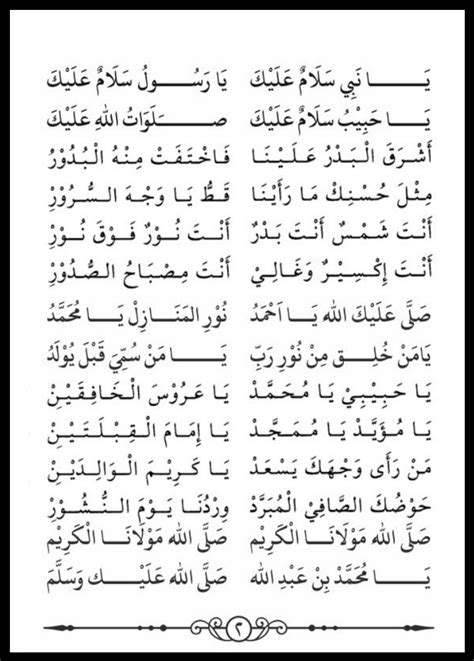 يَا نَبِي سَلَامٌ عَلَيْكَ يَا رَسُولُ سَلَامٌ عَلَيْكَ
يَا حَبِيْبُ سَلَامٌ عَلَيْكَ صَلَوَاتُ اللهِ عَلَيْكَ
أَشْرَقَ الْبَدْرُ عَلَيْنَا فَاخْتَفَتْ مِنْهُ الْبُدُوْرُ
مِثْلَ حُسْنِكَ مَا رَأَيْنَا قَطُّ يَا وَجْهَ السُّرُوْرِ
أَنْتَ شَمْسٌ أَنْتَ بَدْرٌ أَنْتَ نُوْرٌ فَوْقَ نُوْرِ
أَنْتَ إِكْسِيْرٌ وَغَالِيْ أَنْتَ مِصْبَاحُ الصُّدُوْرِ
صَلَّى عَلَيْكَ الله يَا اَحْمَدُ نُوْرِ المَنَازِلْ يَا مُحَمَّدُ
يَامَنْ خُلِقْ مِنْ نُوْرِ رَبِّ يَا مَنْ سُمِّيَ قَبْلَ يُوْلَدُ
يَا حَبِيْبِيْ يَا مُحَمَّدْ يَا عَرُوْسَ الْخَافِقَيْنِ
يَا مُؤَيَّدْ يَا مُمَجَّدْ يَا إِمَامَ الْقِبْلَتَيْنِ
مَنْ رَأَى وَجْهَكَ يَسْعَدْ يَا كَرِيْمَ الْوَالِدَيْنِ
حَوْضُكَ الصَّافِيْ الْمُبَرَّدْ وِرْدُنَا يَوْمَ النُّشُوْرِ
صَلَّى الله مَوْلَانَا الْكَرِيْم صَلَّى الله مَوْلَانَا الْكَرِيْم
يَا مُحَمَّدْ بِنْ عَبْدِ الله صَلَّى الله عَلَيْكَ وَسَلَّمَ
٢